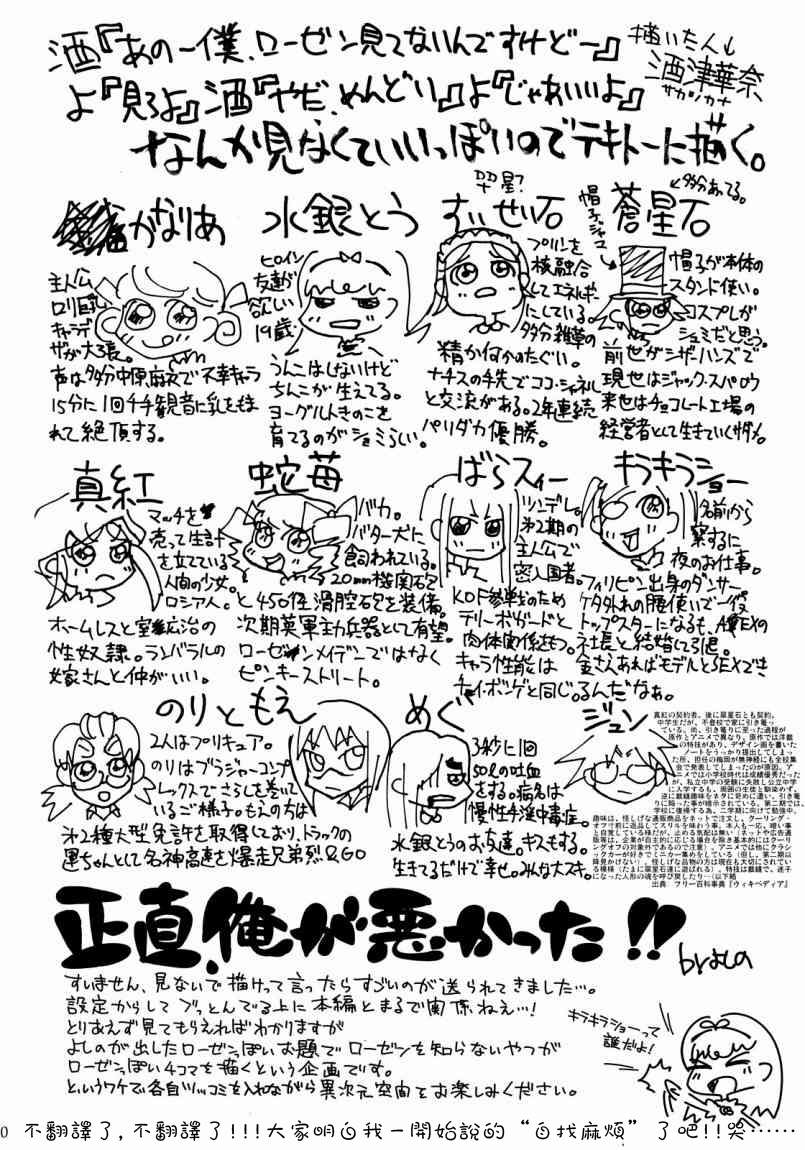 酒『あのー僕、ローゼン見てないんですけどー』
描いた人↓
酒津華奈
サカツカナ
よ『見ろよ』酒『やだ、めんどい』よ『じゃあいいよ』
なんか見なくていいっぽいのでテキトーに描く。
かなりあ
主人公
ロリ巨乳
キャラデ
ザが大張。
声は多分中原麻衣で不幸キャラ
15分に1回千手観音に乳をもま
れて絶頂する。
水銀とう
ヒロイン
友達が
欲しい
19歳。
うんこはしないけど
ちんこが生えてる。
ヨーグルトきのこを
育てるのがシュミらしい。
翠星?
すいせい石
プリンを
核融合
してエネルギー
にしている。
多分雑草の
精か何かのたぐい。
ナチスの手先でココ・シャネル
と交流がある。2年連続
パリダカ優勝。
←多分あってる。
蒼星石
帽子がジャマ
帽子が本体の
スタンド使い。
コスプレが
シュミだと思う。
前世がシザーハンズで
現世はジャック・スパロウ
来世はチョコレート工場の
経営者として生きていくサダメ。
真紅
マッチを
売って生計
を立てている
人間の少女。
ロシア人。
ホームレスと室広治の
性奴隷。ランバラルの
嫁さんと仲がいい。
蛇苺
バカ。
バター犬に
飼われている。
20mm機関砲
と450径滑腔砲を装備。
次期英軍主力兵器として有望。
ローゼンメイデンではなく
ピンキーストリート。
ばらスィー
ツンデレ。
第2期の
主人公で
密入国者。
KOF参戦のため
テリーボガードと
肉体関係をもつ。
キャラ性能は
チョイ・ボンゲと同じ。
キラキラショー
名前から
察するに
夜のお仕事。
フィリピン出身のダンサー
ケタ外れの腰使いで一役
トップスターになるも、APEXの
社長と結婚して引退。
金さえあればモデルとSEXでき
るんだなぁ。
のりともえ
2人はプリキュア。
のりはブラジャーコンプ
レックスでさらしを巻いて
いるご様子。もえの方は
第2種大型免許を取得しており、トラックの
運ちゃんとして名神高速を爆走兄弟烈&GO
めぐ
3秒に1回
50ℓの吐血
をする。病名は
慢性手淫中毒症。
水銀とうのお友達。キスもする。
生きてるだけで幸せ。みんな大スキ。
ジュン
真紅の契約者。後に翠星石とも契約。
中学生だが、不登校で家に引き篭っ
ている。尚、引き篭りに至った過程が
原作とアニメで異なり、原作では洋裁
の特技があり、デザイン画を書いた
ノートをうっかり提出してしまっ
た所、担任の梅岡が無神経にも全校集
会で発表してしまったのが原因。ア
ニメでは小学校時代は成績優秀だった
が、私立中学の受験に失敗し公立中学
に入学するも、周囲の生徒と馴染めず、
逆に裁縫趣味をネタに苛めに遭い、引き篭
りに陥った事が暗示されている。第二期では、
学校に復帰する為、二学期に向けて勉強中。
趣味は、怪しげな通販商品をネットで注文し、クーリング・
オフ寸前に返品してスリルを味わう事。本人も一応、暗い事
と自覚している様だが、止める気配は無い（ネットや広告通
販等は、企業が自主的に応じる場合を除き基本的にはクーリン
グオフの対象外であるので注意）。アニメでは他にクラシ
ックカーが好きでミニカー集めをしている（但し、第二期以
降見かけない）。怪しげな品物の方は現在も大切にされてい
る模様（たまに翠星石達に遊ばれる）。特技は裁縫で、迷子
になった人形の魂を呼び戻したり…(以下略
出典　フリー百科事典『ウィキペディア』
正直、俺が悪かった!!
すいません、見ないで描けって言ったらすごいのが送られてきました…。
設定からしてブッとんでる上に本編とまるで関係ねぇ…!
とりあえず見てもらえればわかりますが
よしのが出したローゼンぽいお題でローゼンを知らないやつが
ローゼンぽい4コマを描くという企画です。
というワケで、各自ツッコミを入れながら異次元空間をお楽しみください。
キラキラショーって
誰だよ!
0 不翻譯了,不翻譯了!!!大家明白我一開始說的“自找麻煩”了吧!!哭……